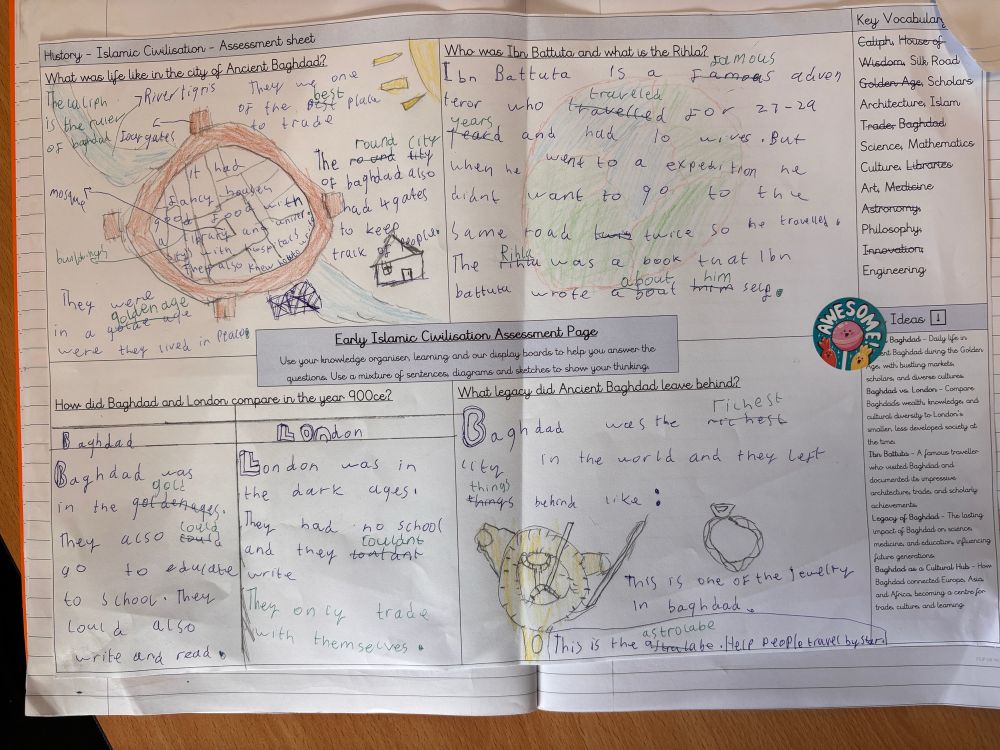 History - Islamic Civilisation - Assessment sheet
What was life like in the city of Ancient Baghdad?
The caliph
is the ruler
of baghdad
River tigris
4 our gates
They we one
best
of the best place
to trade
mosque
buildings
it had
fancy houses
good food with
a library and
city with hospitals
They also knew how to
round city
The round city
of baghdad also
had 4 gates
to keep
track of people.
They were
golden age
in a golde age
were they lived in peace.
Who was Ibn Battuta and what is the Rihla?
famous
Ibn Battuta is a famous adven
traveled
teror who travelled for 27-29
years
yeard and had 10 wives. But
when he went to a expedition he
didnt want to go to the
same road twice so he travelled.
Rihla
The rihla was a book that Ibn
about him
battuta wrote a boat him self.
Early Islamic Civilisation Assessment Page
Use your knowledge organiser, learning and our display boards to help you answer the
questions. Use a mixture of sentences, diagrams and sketches to show your thinking.
How did Baghdad and London compare in the year 900ce?
Baghdad
Baghdad was
gold
in the golden ages.
could
They also could
go to educate
to school. They
could also
write and read.
London
London was in
the dark ages.
They had no school
couldnt
and they
write
They only trade
with themselves.
What legacy did Ancient Baghdad leave behind?
richest
Baghdad was the richest
city in the world and they left
things
things behind like:
This is one of the jewelry
in baghdad.
astrolabe
This is the astralabe. Help people travel by stars
Key Vocabulary
Caliph, House of
Wisdom, Silk Road
Golden Age, Scholars
Architecture, Islam
Trade, Baghdad
Science, Mathematics
Culture, Libraries
Art, Medicine
Astronomy,
Philosophy,
Innovation,
Engineering
AWESOME!
Ideas 1
Baghdad - Daily life in
Baghdad during the Golden
Age, with bustling markets,
scholars, and diverse cultures.
Baghdad vs. London - Compare
Baghdad's wealth, knowledge, and
cultural diversity to London's
smaller, less developed society at
the time.
Ibn Battuta - A famous traveller
who visited Baghdad and
documented its impressive
architecture, trade, and scholarly
achievements.
Legacy of Baghdad - The lasting
impact of Baghdad on science,
medicine, and education, influencing
future generations.
Baghdad as a Cultural Hub - How
Baghdad connected Europe, Asia,
and Africa, becoming a centre for
trade, culture, and learning.